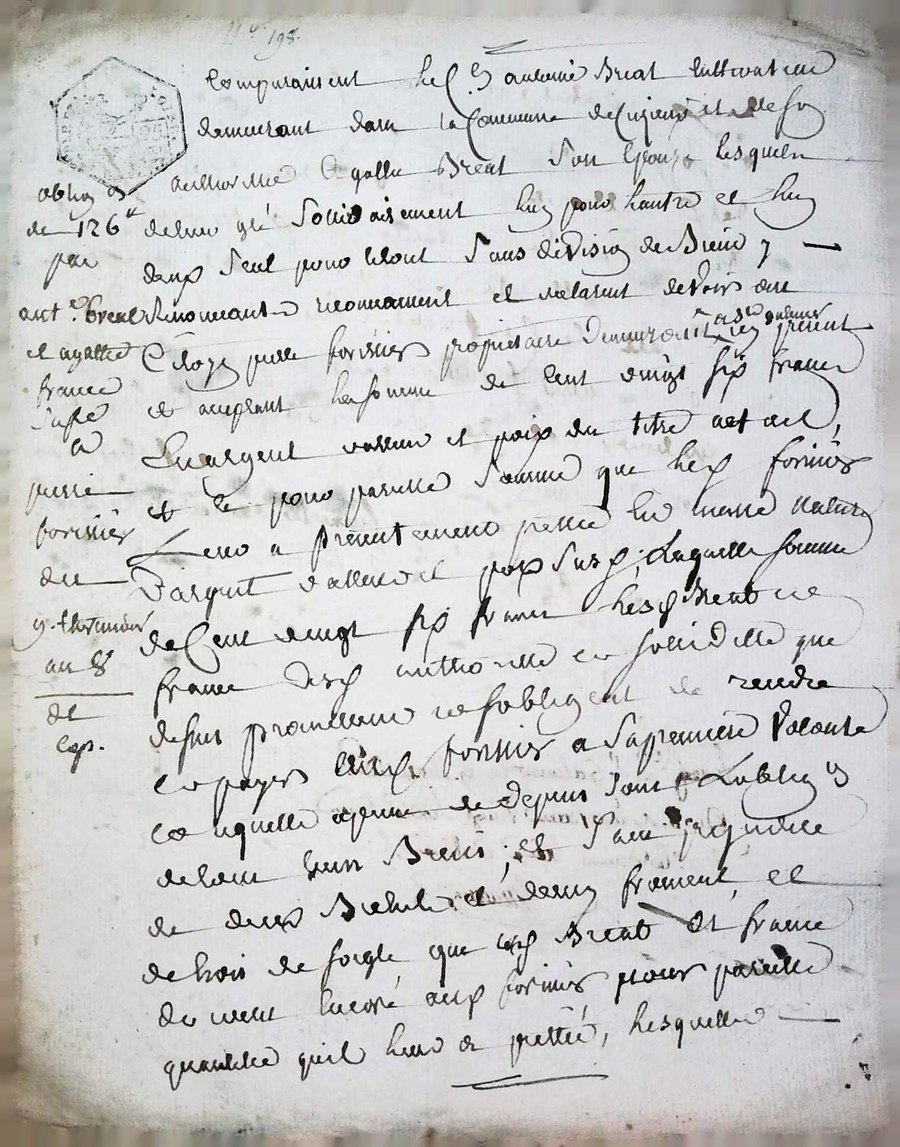 N.° 198.
Comparaissent les C.ns antoine Breat Cultivateur
demeurant dans la Commune de et de soy
authorisée agathe Breat son Epouse lesquels
de leur gré Sollidairement l'un pour l'autre et l'un
deux seul pour le tout Sans division de Biens y
Renonceant reconnaissent et declarent devoir au
Citoyen pierre forissier propriétaire demeurant a st present
et acceptant la somme de Cent vingt six francs
En argent valleur et poix du titre actuel,
et ce pour pareille Somme que led forissier
Leur a presentement prettée En meme nature
d'argent valleur et poix Susd; Laquelle somme
de Cent vingt six francs lesd Breat et
france authorisée et sollidaire que
dessus promettent et s'obligent de rendre
et payer aud forissier a sa premiere Volonté
et requette a peine de depens sous L'oblig.on
de tous leurs Biens; et sans prejudice
de deux Bichets et demy froment, et
de trois de soigle que lesd Breat et france
doivent Encore aud forissier pour pareille
quantité qu'il leur a prettée, lesquelles
oblig.on
de 126 #
par
ant.e breat
et agathe
france
a
pierre
forissier
du
9. thermidor
an 8
et
exp.